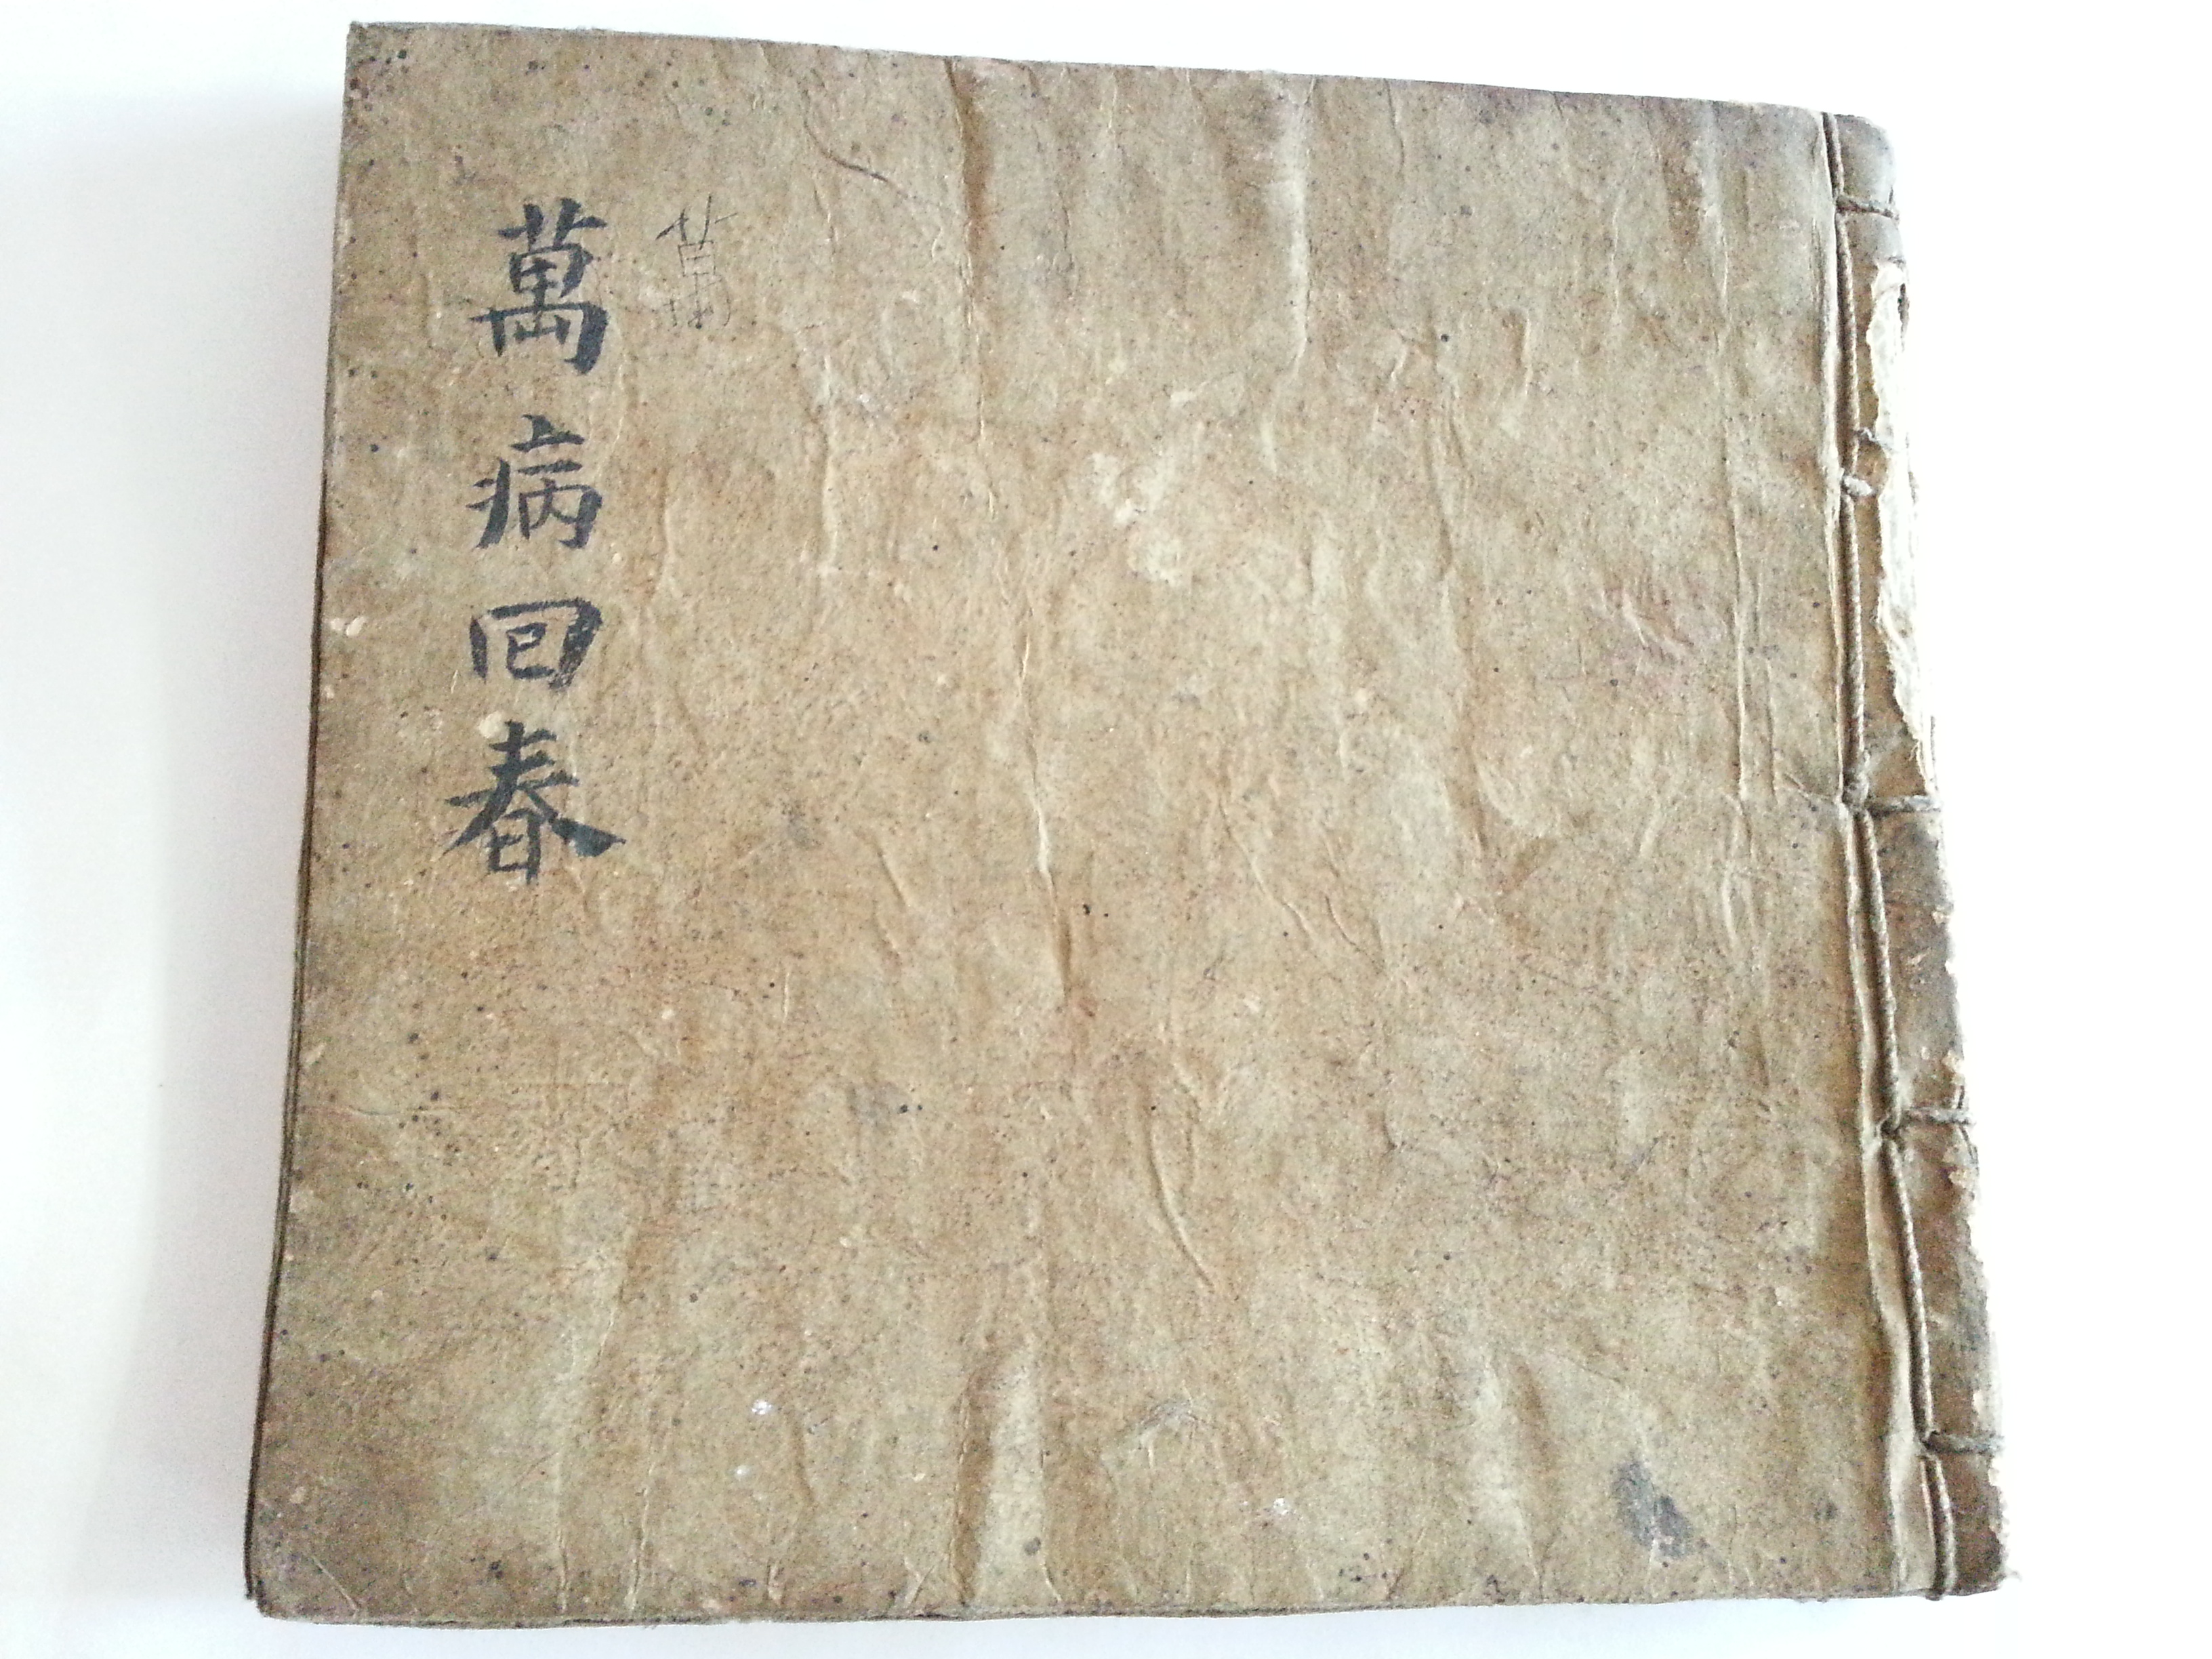 萬
萬病回春